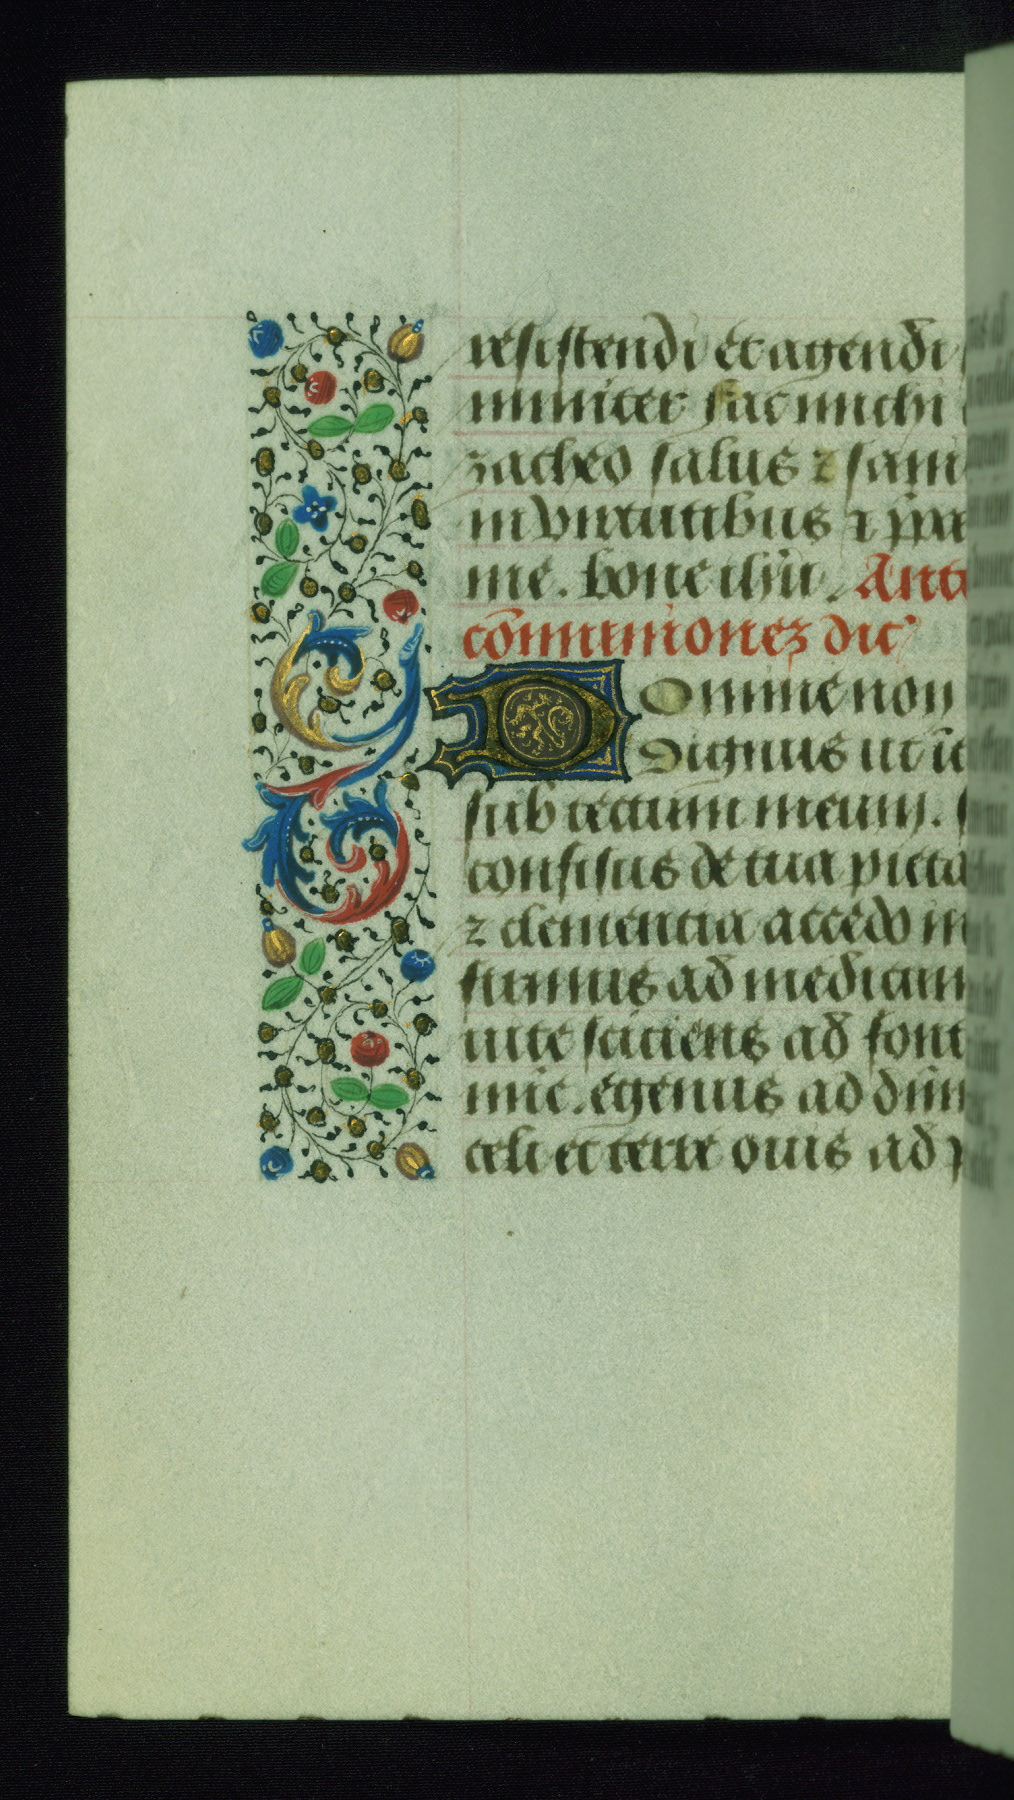 resistendi et agendi
mmiter fac michi
zacheo salus ⁊ sam
in virtutibus ⁊ pre
me. bone ihū. Ante
cōmunionez dic'
Domine non
dignus ut ī
sub tectum meum. s
confisus de tua pieta
⁊ clementia accedo in
firmus ad medicum
vite sciciens ad font
mie. egenus ad dūm
celi et terre ouis ad p